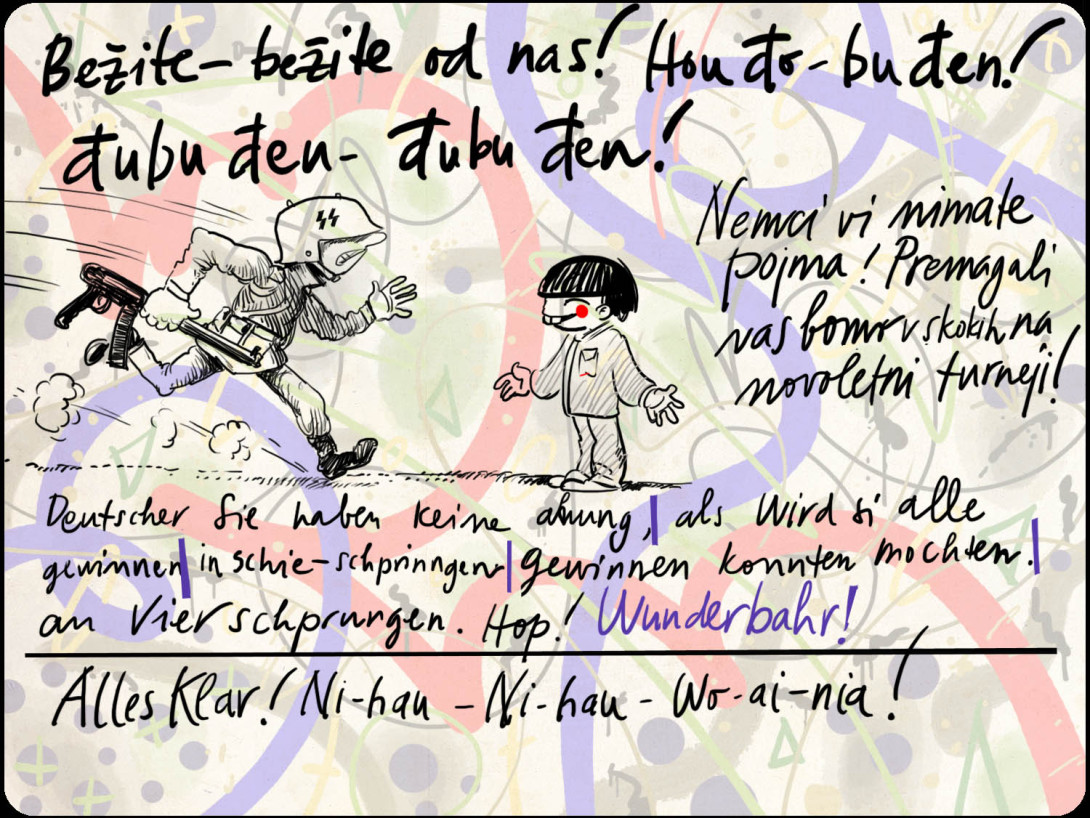 Bežite- bežite od nas! Hou đo-bu đen!
đubu đen- đubu đen!
ϟϟ
Nemci vi nimate
pojma! Premagali
vas bomo v skokih na
novoletni turneji!
Deutscher Sie haben keine ahnung, als Wird si alle
gewinnen in schie-schprinngen gewinnen konnten mochten.
an Vier schprungen. Hop! Wunderbahr!
Alles Klar! Ni-hau - Ni-hau - Wo-ai-nia!